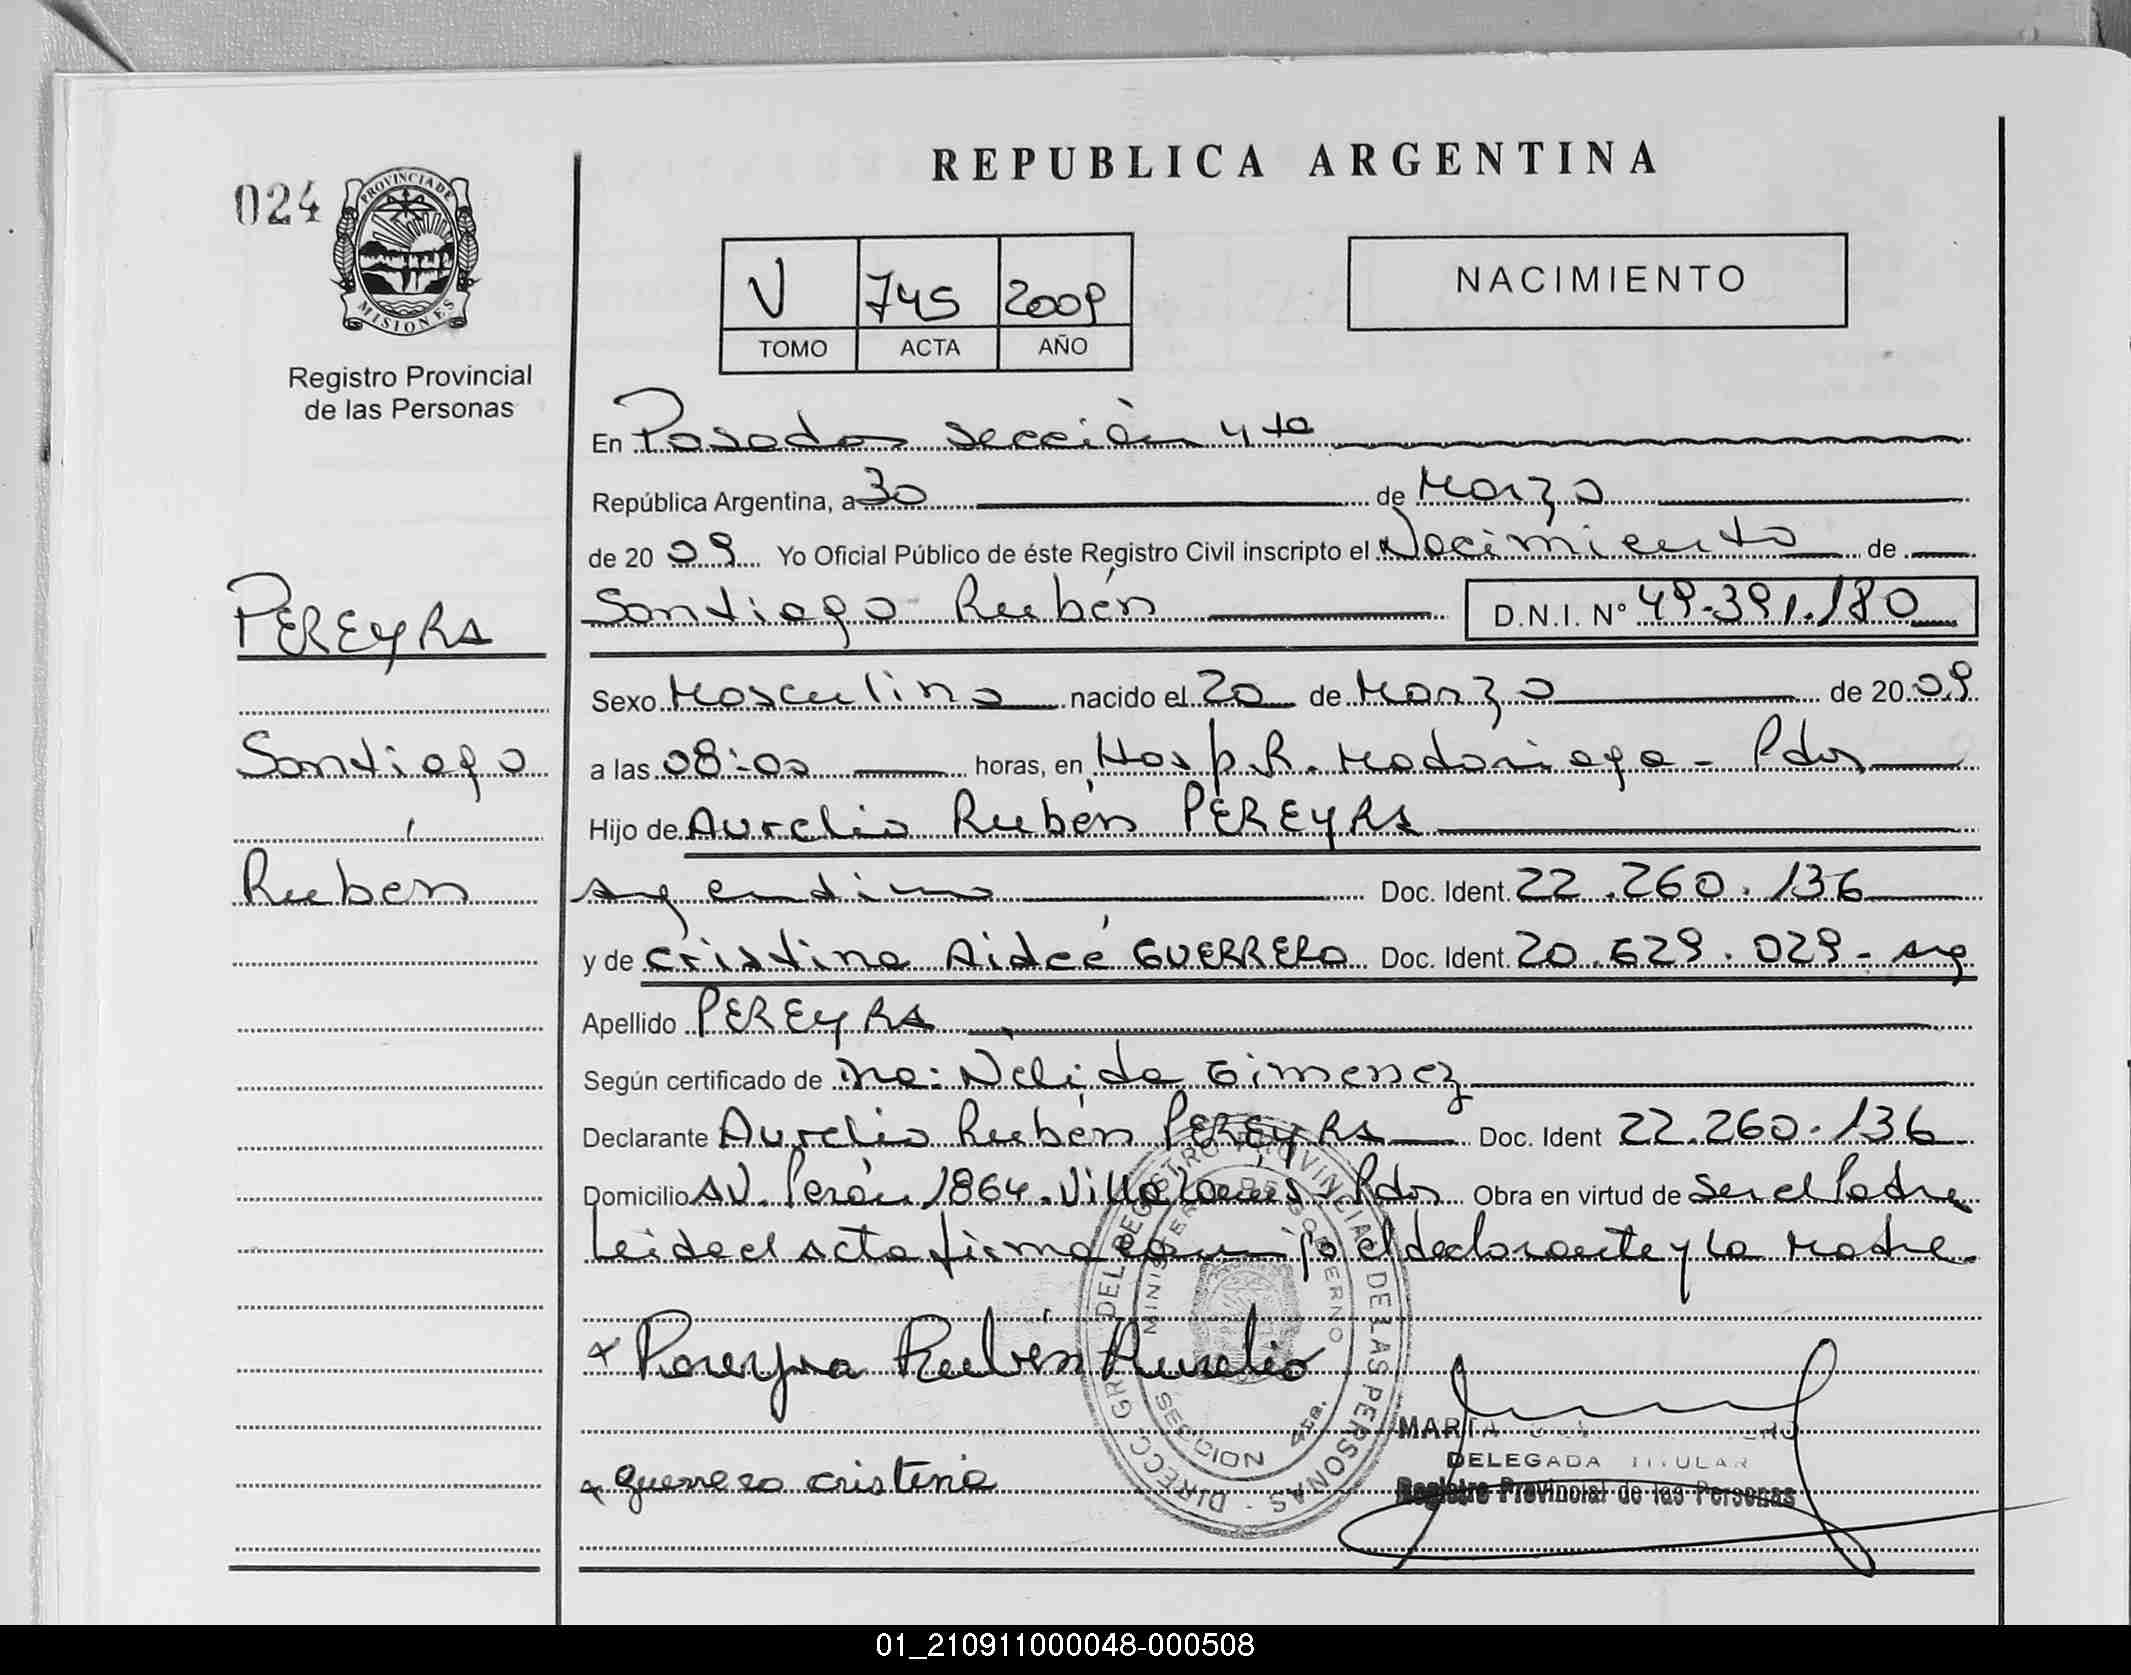 REPUBLICA ARGENTINA
024
PROVINCIA DE
MISIONES
Registro Provincial
de las Personas
V 745 2009
TOMO ACTA AÑO
NACIMIENTO
En Posadas sección 4ta
República Argentina, a 30 de Marzo
de 2009 Yo Oficial Público de éste Registro Civil inscripto el Nacimiento de
PEREYRA
Santiago Rubén D.N.I. Nº 49.391.180
Sexo Masculino nacido el 20 de Marzo de 2009
Santiago
a las 08:00 horas, en Hosp. R. Madariaga - Pdas
Hijo de Aurelio Rubén PEREYRA
Rubén
argentino Doc. Ident. 22.260.136
y de Cristina Aideé GUERRERO Doc. Ident. 20.629.029 - arg
Apellido PEREYRA
Según certificado de Nélida Gimenez
Declarante Aurelio Rubén PEREYRA Doc. Ident 22.260.136
Domicilio AV. Perón 1864. Villa Pdas Obra en virtud de Ser el Padre
Leida el acta firma el declarante y la Madre.
Pereyra Rubén Aurelio
guerrero cristina
DIRECC. GR DEL REGISTRO PROVINCIAL DE LAS PERSONAS
MINISTERIO DE GOBIERNO
SECCION 4ta.
MARTA
DELEGADA TITULAR
Registro Provincial de las Personas
01_210911000048-000508